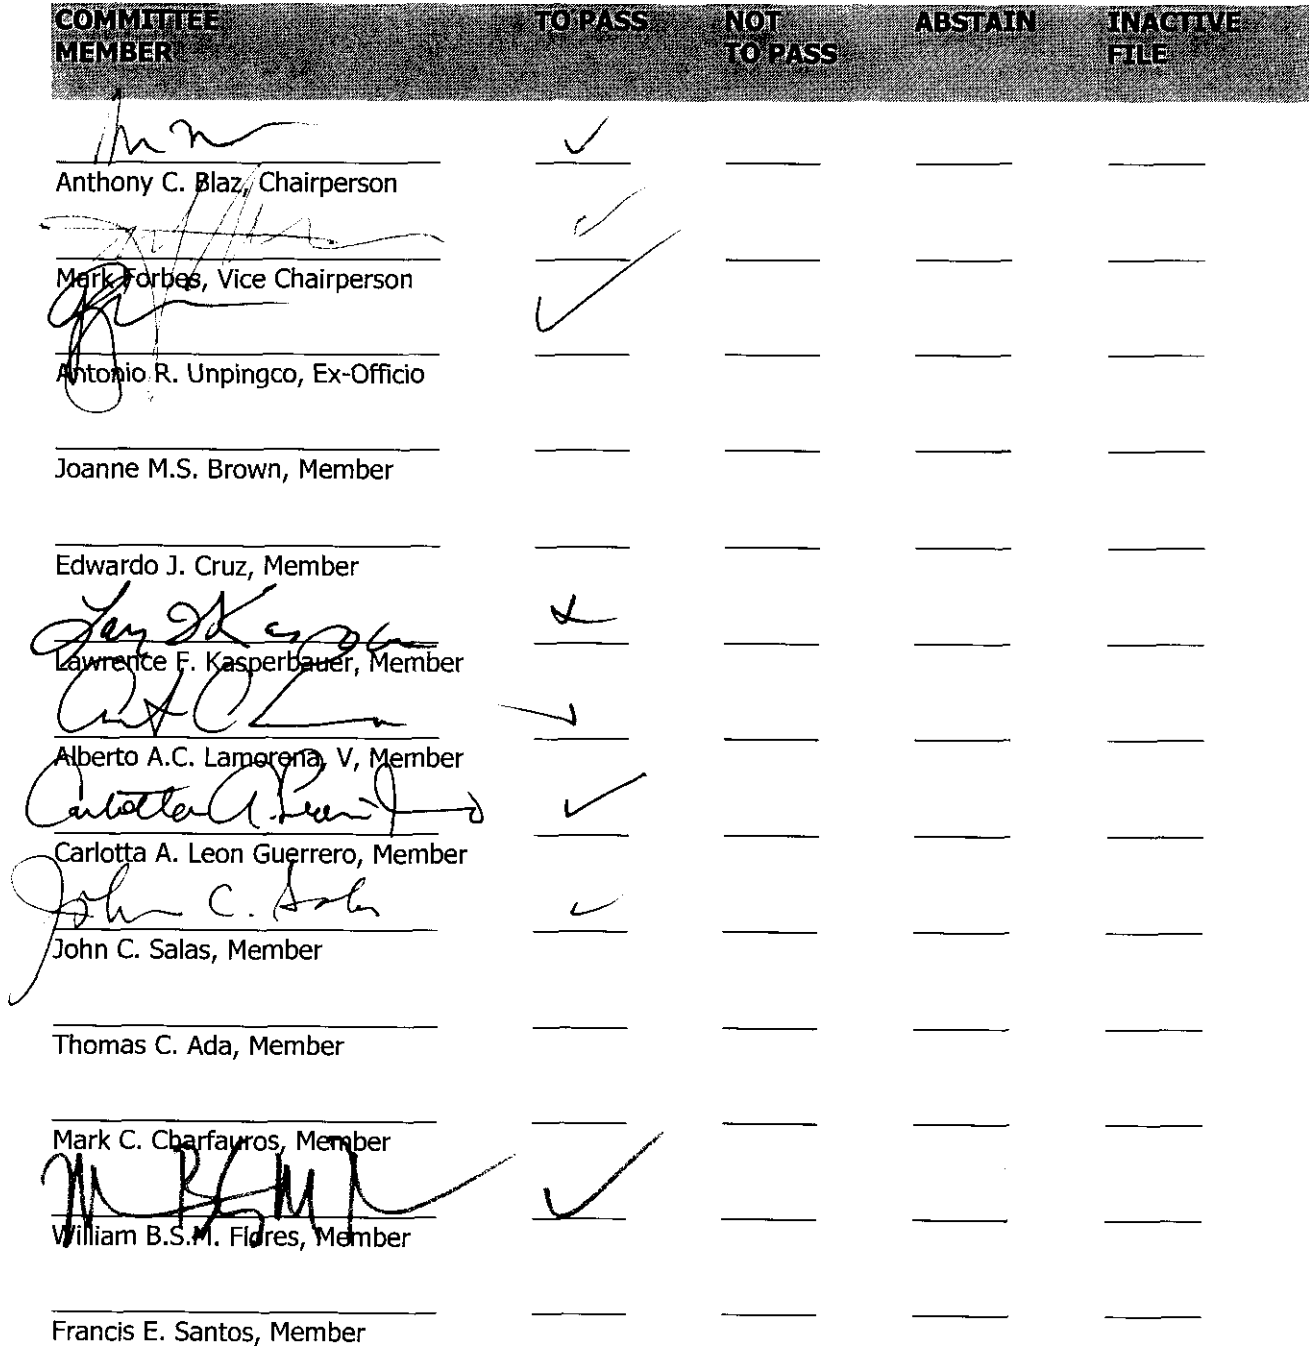 COMMITTEE MEMBER TO PASS NOT TO PASS ABSTAIN INACTIVE FILE
✓
Anthony C. Blaz, Chairperson
✓
Mark Forbes, Vice Chairperson
✓
Antonio R. Unpingco, Ex-Officio
Joanne M.S. Brown, Member
Edwardo J. Cruz, Member
Lawrence F. Kasperbauer, Member
✓
Alberto A.C. Lamorena, V, Member
Carlotta A. Leon Guerrero ✓
Carlotta A. Leon Guerrero, Member
John C. Salas ✓
John C. Salas, Member
Thomas C. Ada, Member
Mark C. Charfauros, Member
✓
William B.S.M. Flores, Member
Francis E. Santos, Member